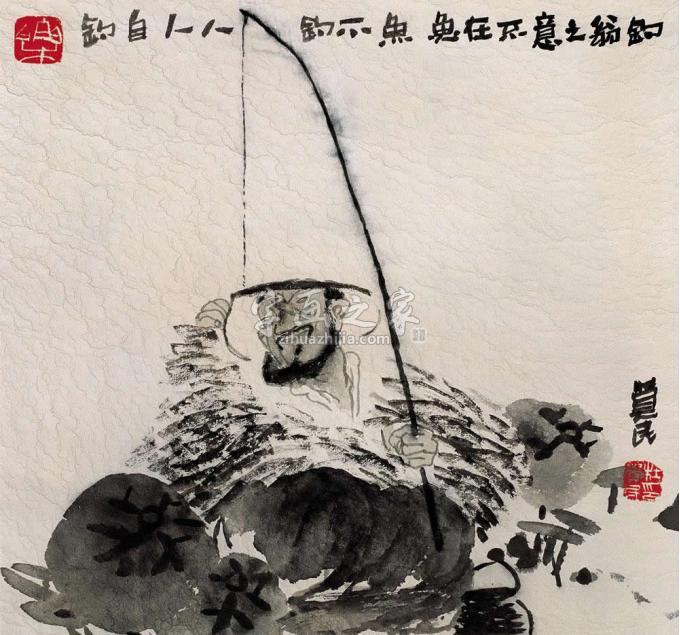 钓翁之意不在鱼 魚不钓人人自钓
覺民
字画之家
zihuazhijia.com